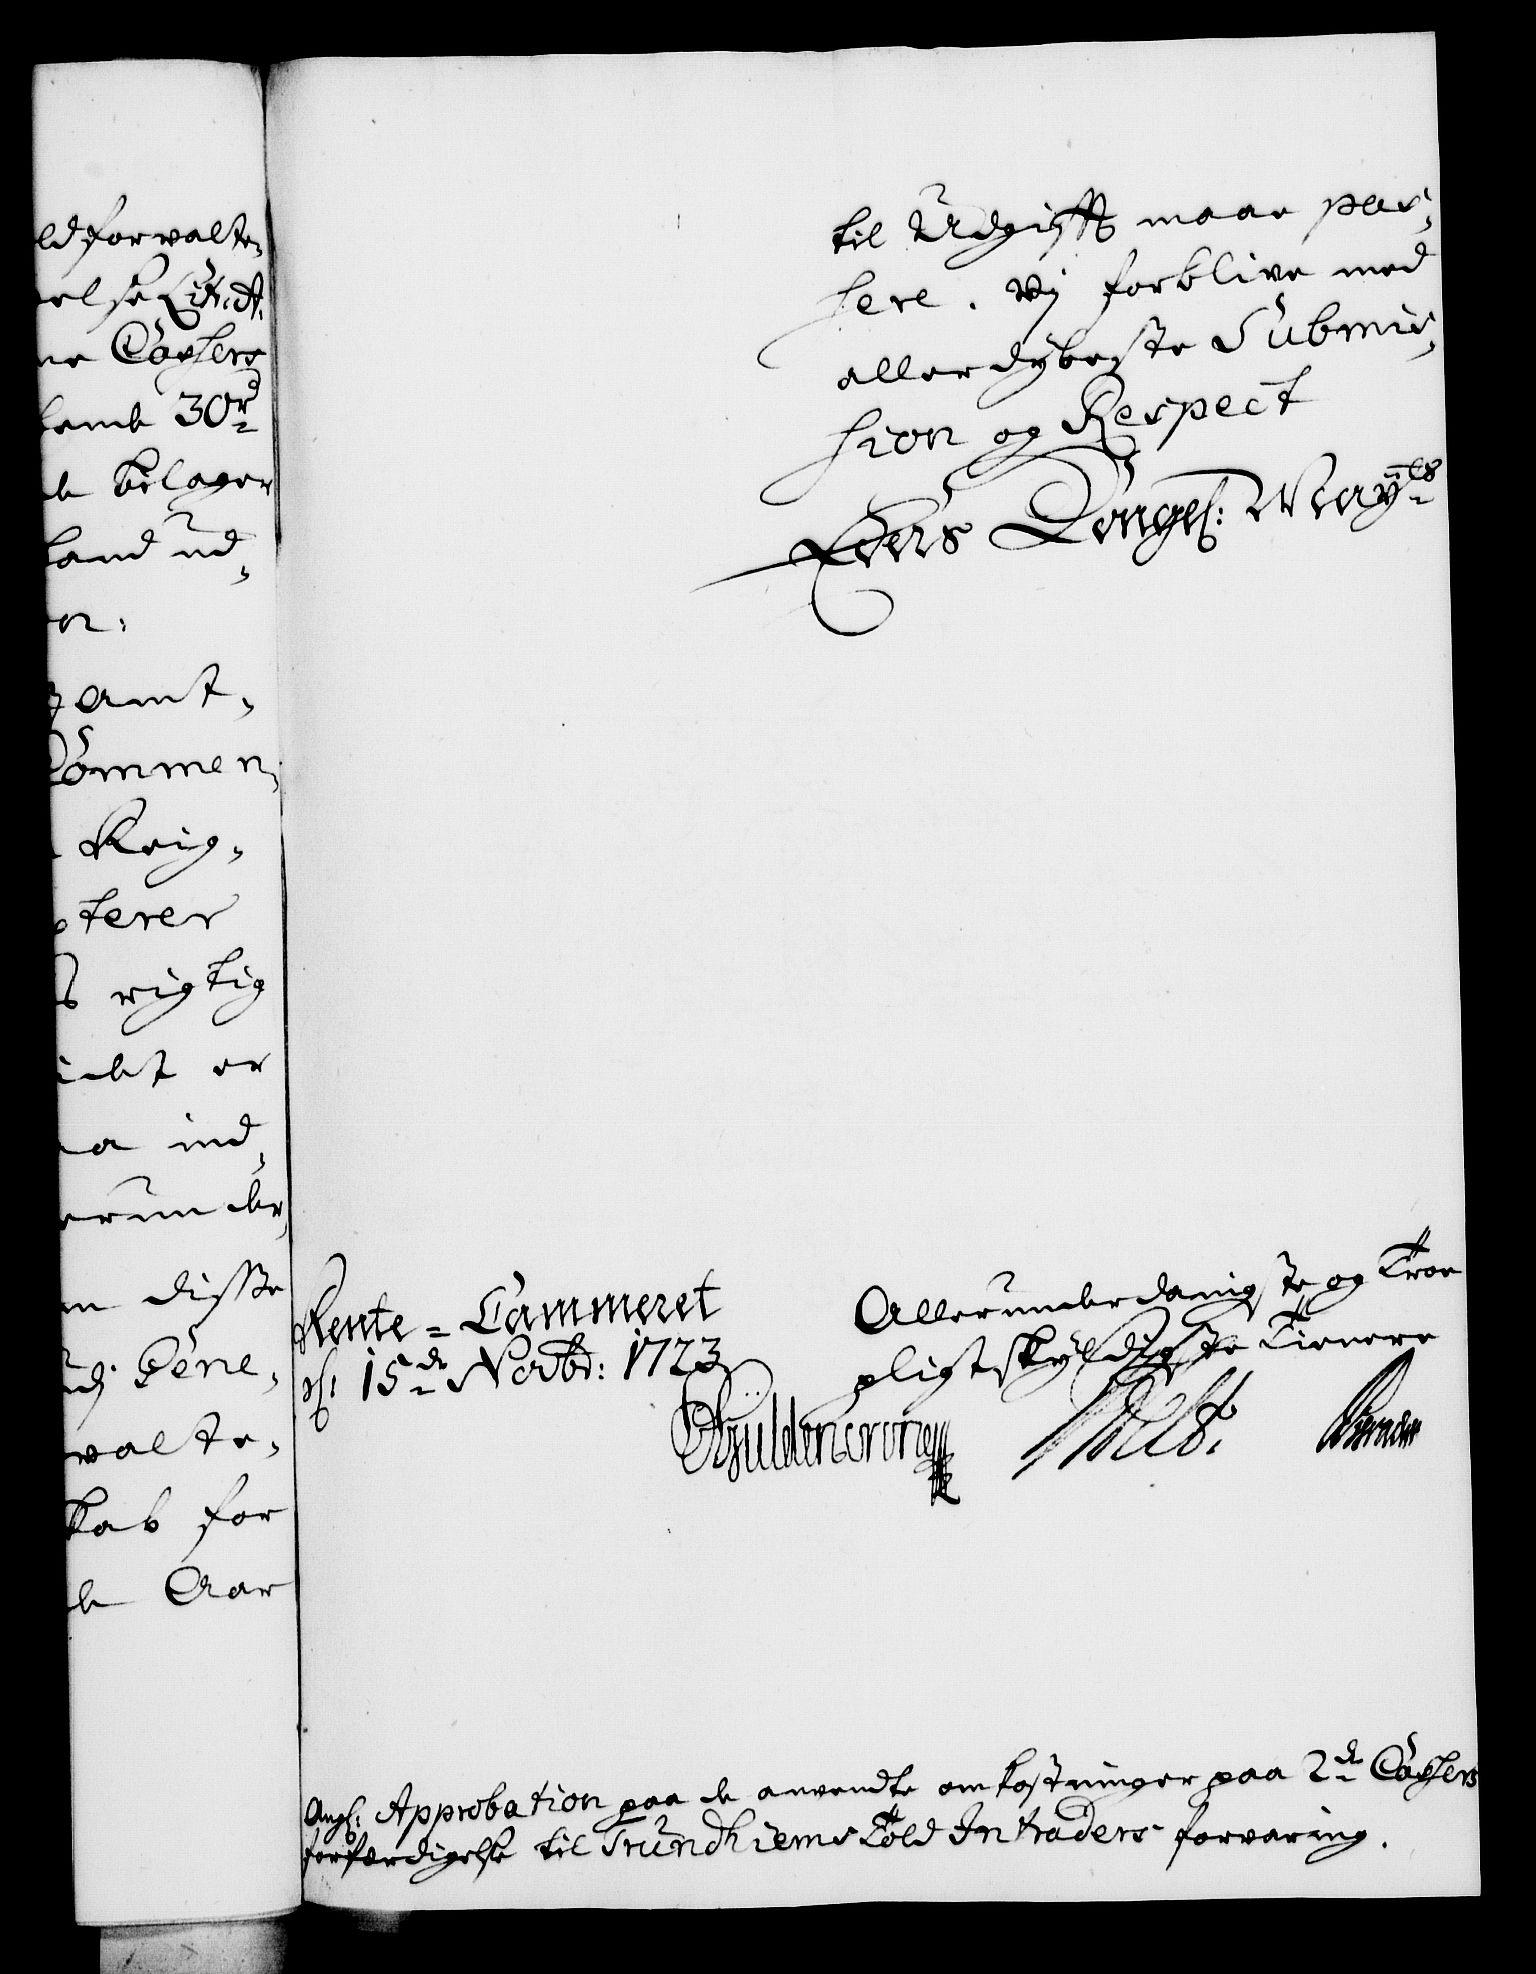 ldforvalte,
else Lit: A.
ne Coffers
30 rd
bilager
land ud,
en:
amt,
Commen,
Reig,
pterer
rigtig
idet er
aa ind,
erunder,
en disse
Gene,
valte,
kab for
de Aar
til Udgifft maae pas,
sere. Vij forblive med
allerdybeste Submis,
sion og Respect
Eders Kongel: Mayts
Rente-Cammeret
d: 15de Novbr: 1723
Allerunderdanigste og Troe
pligtskyldigste Tienere
Gÿldencrone
Angl: Approbation paa de anvendte omkostninger paa 2de Coffers
forfærdigelse til Trundhiems Told Intraders forvaring.